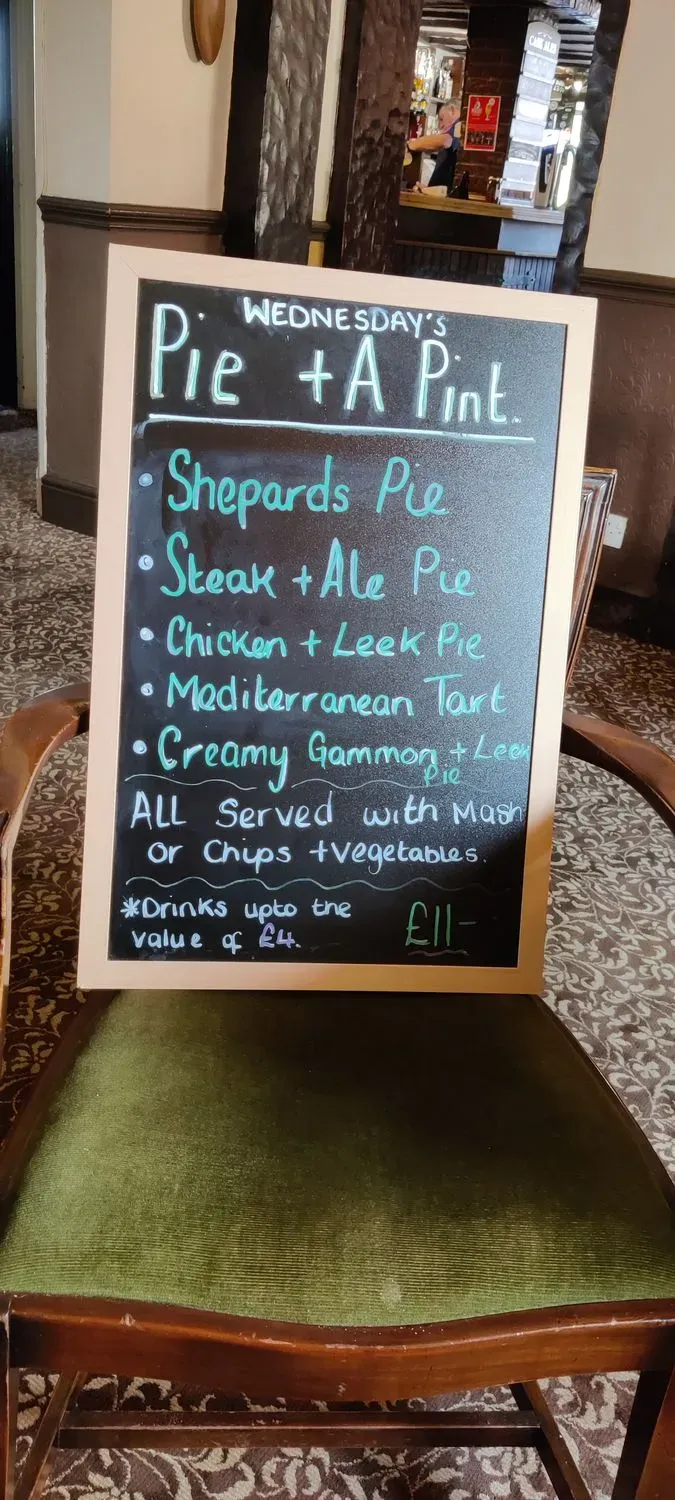 WEDNESDAY'S
Pie + A Pint.
• Shepards Pie
• Steak + Ale Pie
• Chicken + Leek Pie
• Mediterranean Tart
• Creamy Gammon + Leek
Pie
ALL Served with Mash
or Chips + Vegetables.
*Drinks upto the
value of £4.
£11-